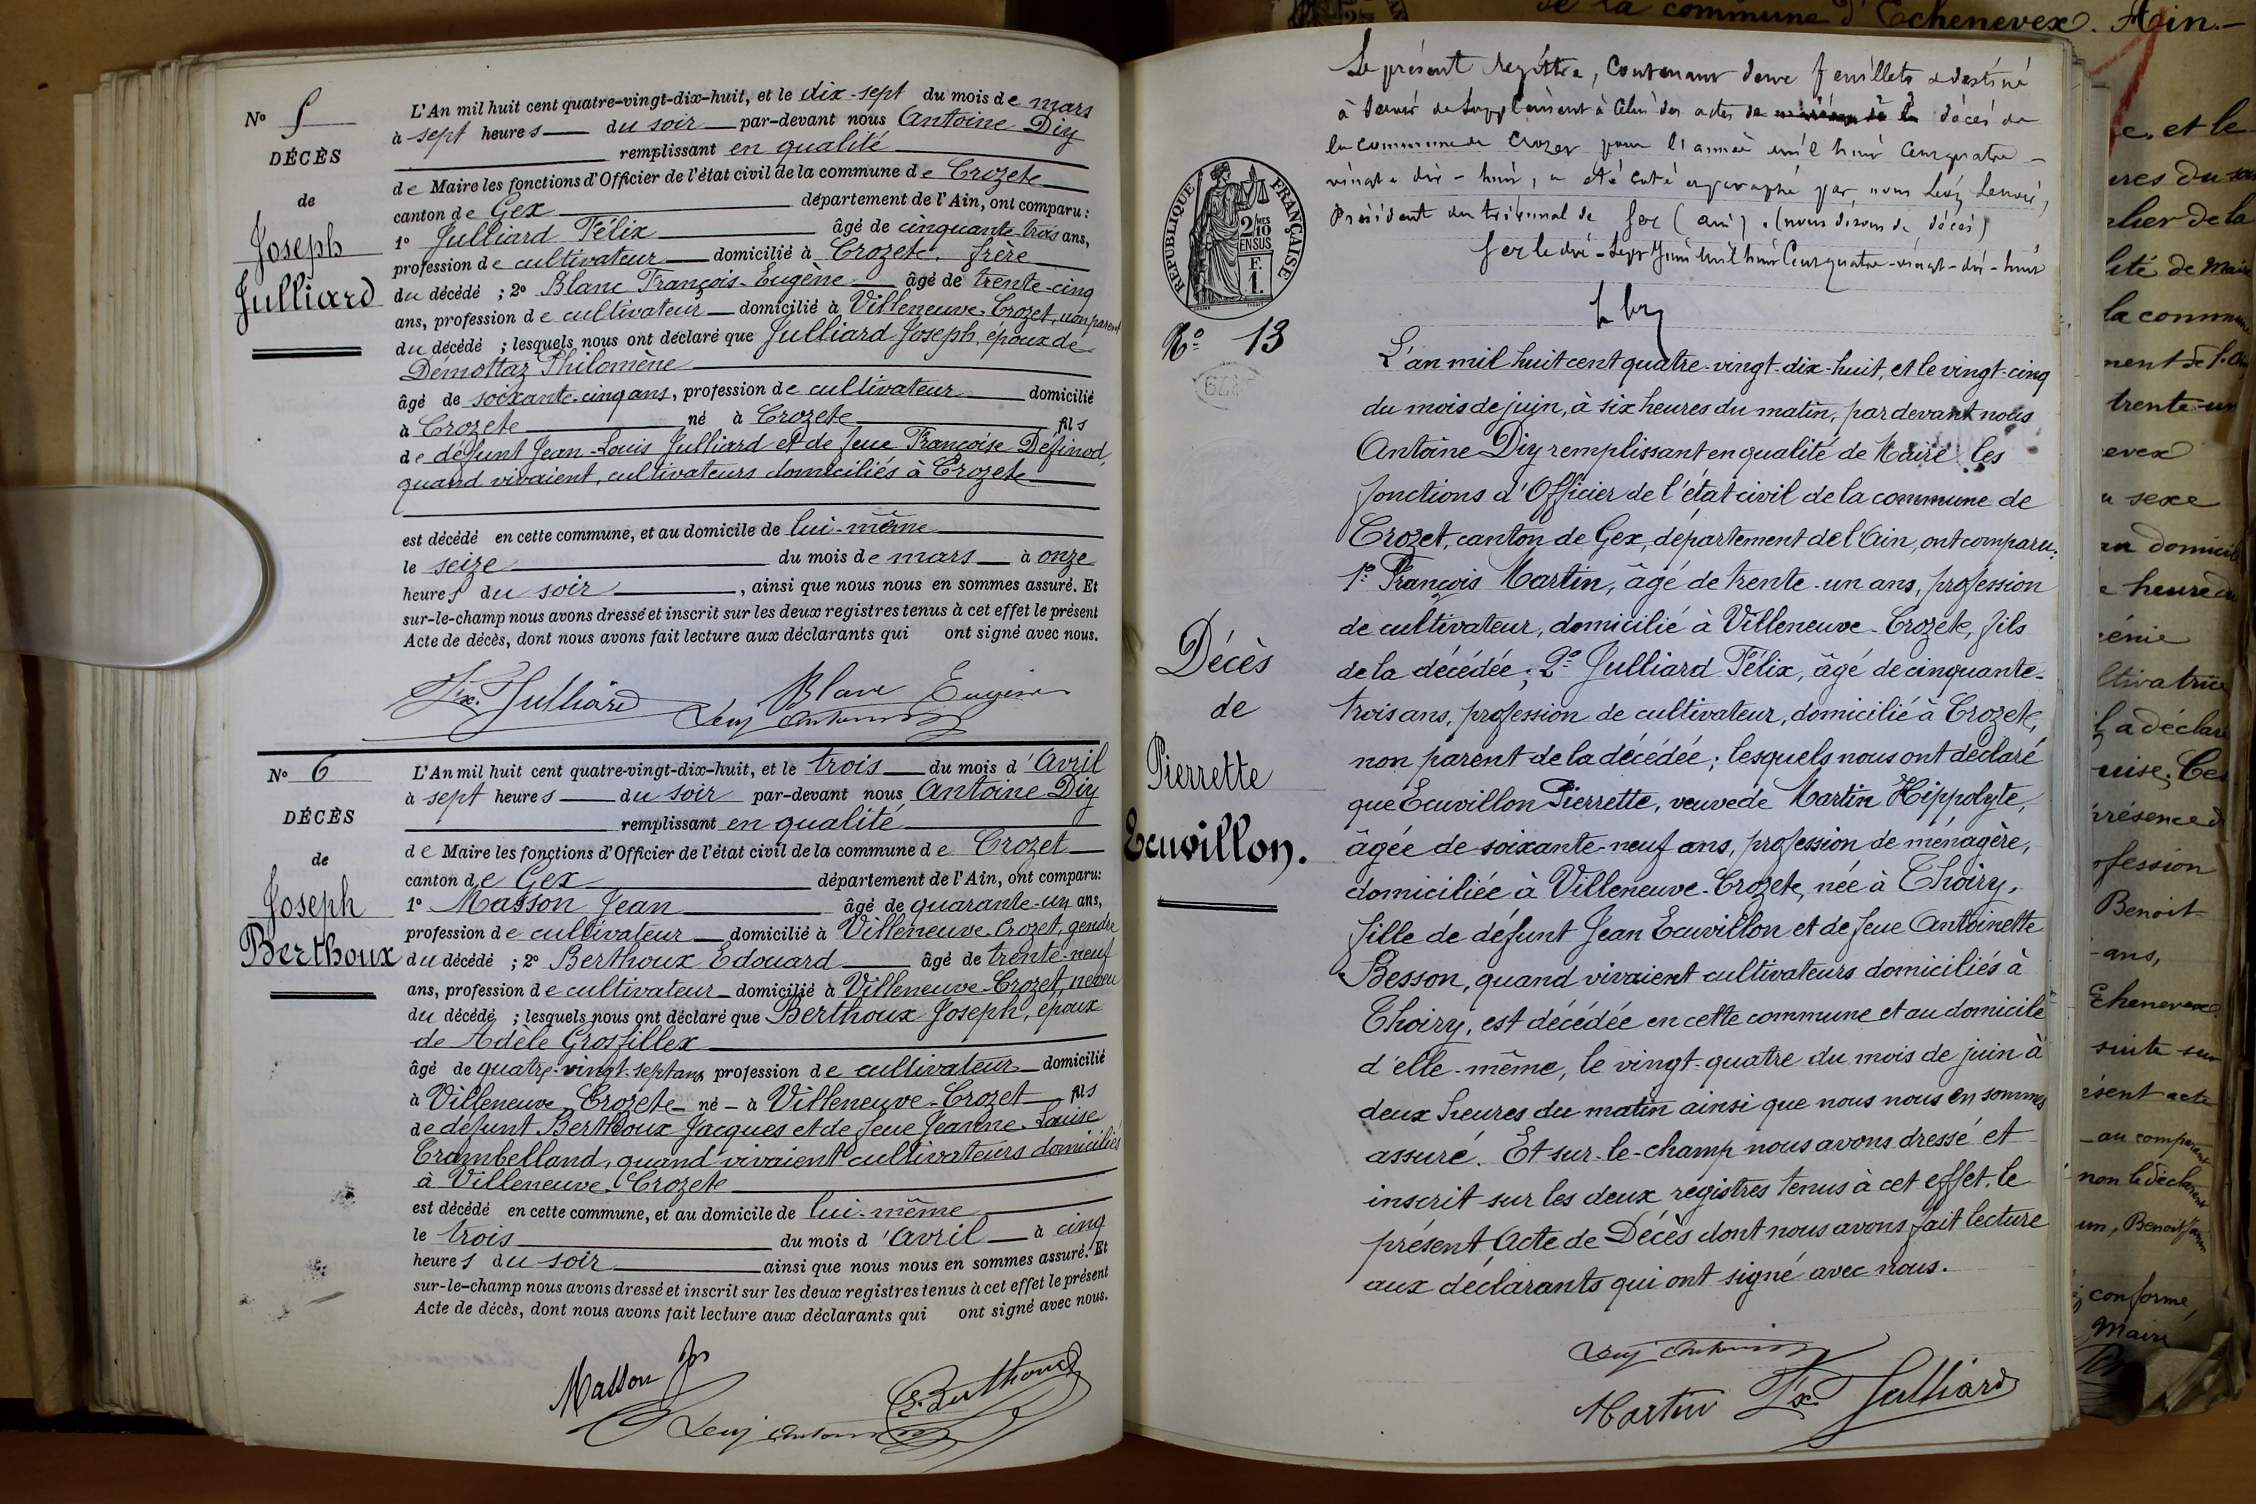 No 5
DÉCÈS
de
Joseph
Julliard
L'An mil huit cent quatre-vingt-dix-huit, et le dix-sept du mois de mars
à sept heures du soir par-devant nous Antoine Diy
remplissant en qualité
de Maire les fonctions d'Officier de l'état civil de la commune de Crozete
canton de Gex département de l'Ain, ont comparu :
1o Julliard Félix âgé de cinquante-trois ans,
profession de cultivateur domicilié à Crozete, frère
du décédé ; 2o Blanc François-Eugène âgé de trente-cinq
ans, profession de cultivateur domicilié à Villeneuve-Crozet, non parent
du décédé ; lesquels nous ont déclaré que Julliard Joseph, époux de
Démottaz Philomène
âgé de soixante-cinq ans, profession de cultivateur domicilié
à Crozete né à Crozete fils
de défunt Jean-Louis Julliard et de feue Françoise Définod,
quand vivaient, cultivateurs domiciliés à Crozete
est décédé en cette commune, et au domicile de lui-même
le seize du mois de mars à onze
heures du soir, ainsi que nous nous en sommes assuré. Et
sur-le-champ nous avons dressé et inscrit sur les deux registres tenus à cet effet le présent
Acte de décès, dont nous avons fait lecture aux déclarants qui ont signé avec nous.
Fx. Julliard Blanc Eugène
No 6
DÉCÈS
de
Joseph
Berthoux
L'An mil huit cent quatre-vingt-dix-huit, et le trois du mois d'Avril
à sept heures du soir par-devant nous Antoine Diy
remplissant en qualité
de Maire les fonctions d'Officier de l'état civil de la commune de Crozet
canton de Gex département de l'Ain, ont comparu:
1o Masson Jean âgé de quarante-un ans,
profession de cultivateur domicilié à Villeneuve-Crozet, gendre
du décédé ; 2o Berthoux Edouard âgé de trente-neuf
ans, profession de cultivateur domicilié à Villeneuve-Crozet, neveu
du décédé ; lesquels nous ont déclaré que Berthoux Joseph, époux
de Adèle Grosfillex
âgé de quatre-vingt-sept ans profession de cultivateur domicilié
à Villeneuve Crozete né à Villeneuve-Crozet fils
de défunt Berthoux Jacques et de feue Jeanne-Louise
Trambelland, quand vivaient cultivateurs domiciliés
à Villeneuve-Crozete
est décédé en cette commune, et au domicile de lui-même
le trois du mois d'Avril à cinq
heures du soir ainsi que nous nous en sommes assuré. Et
sur-le-champ nous avons dressé et inscrit sur les deux registres tenus à cet effet le présent
Acte de décès, dont nous avons fait lecture aux déclarants qui ont signé avec nous.
Masson Jn
E. Berthoux
de la commune d'Echenevex. Ain.
Le présent registre, contenant deux feuillets & destiné
à servir de supplément à celui des actes de décès de
la commune de Crozet pour l'année mil huit cent quatre-
vingt-dix-huit, a été coté et paraphé par nous
Président du tribunal de Gex (ain). (nous disons de décès)
Gex le dix-sept Juin mil huit cent quatre-vingt-dix-huit
RÉPUBLIQUE FRANÇAISE
2/10 MES
EN SUS
E.
1.
No 13
Décès
de
Pierrette
Ecuvillon.
L'an mil huit cent quatre-vingt-dix-huit, et le vingt-cinq
du mois de juin, à six heures du matin, par devant nous
Antoine Diy remplissant en qualité de Maire les
fonctions d'Officier de l'état civil de la commune de
Crozet, canton de Gex, département de l'Ain, ont comparu:
1o François Martin, âgé de trente-un ans, profession
de cultivateur, domicilié à Villeneuve-Crozete, fils
de la décédée; 2o Julliard Félix, âgé de cinquante-
trois ans, profession de cultivateur, domicilié à Crozete,
non parent de la décédée; lesquels nous ont déclaré
que Ecuvillon Pierrette, veuve de Martin Hippolyte,
âgée de soixante-neuf ans, profession de ménagère,
domiciliée à Villeneuve-Crozete, née à Thoiry,
fille de défunt Jean Ecuvillon et de feue Antoinette
Besson, quand vivaient cultivateurs domiciliés à
Thoiry, est décédée en cette commune et au domicile
d'elle-même, le vingt-quatre du mois de juin à
deux heures du matin ainsi que nous nous en sommes
assuré. Et sur-le-champ nous avons dressé et
inscrit sur les deux registres tenus à cet effet, le
présent Acte de Décès dont nous avons fait lecture
aux déclarants qui ont signé avec nous.
Martin Fx. Julliard
e, et le
la commune
trente-un
sexe
domicile
heure du
a déclaré
profession
Benoit
ans,
Echenevex
suite sur
conforme,
Maire